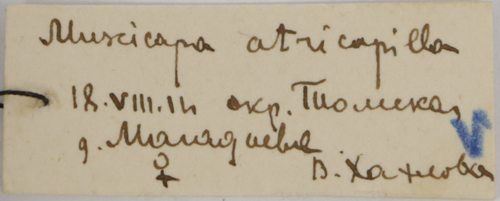 Muscicapa atricapilla
18.VIII.11 окр. Томска,
д. Магадаева
♀ В. Хахлова
V